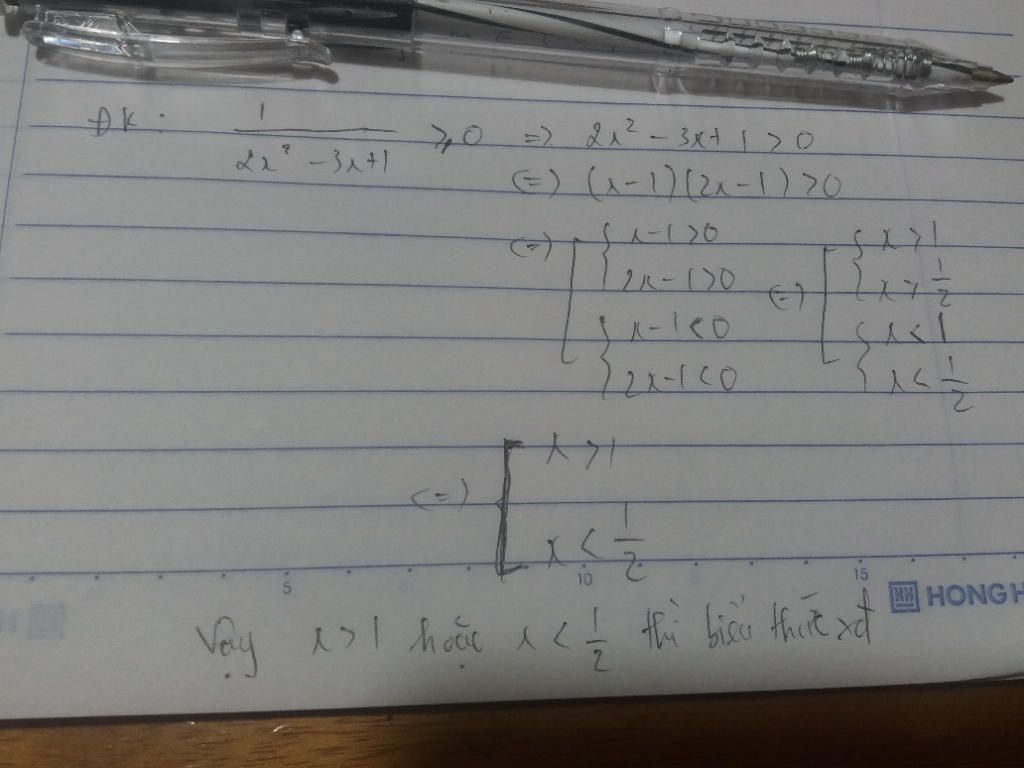 ĐK: 1/(2x² - 3x+1) ≥ 0 => 2x² - 3x+1 > 0
(=) (x-1)(2x-1) > 0
(=) [ { x-1 > 0 (=) [ { x > 1
2x-1 > 0 x > 1/2
{ x-1 < 0 { x < 1
2x-1 < 0 x < 1/2
<=> [ x > 1
x < 1/2
5 10 15
HONG H
Vậy x > 1 hoặc x < 1/2 thì biểu thức xđ